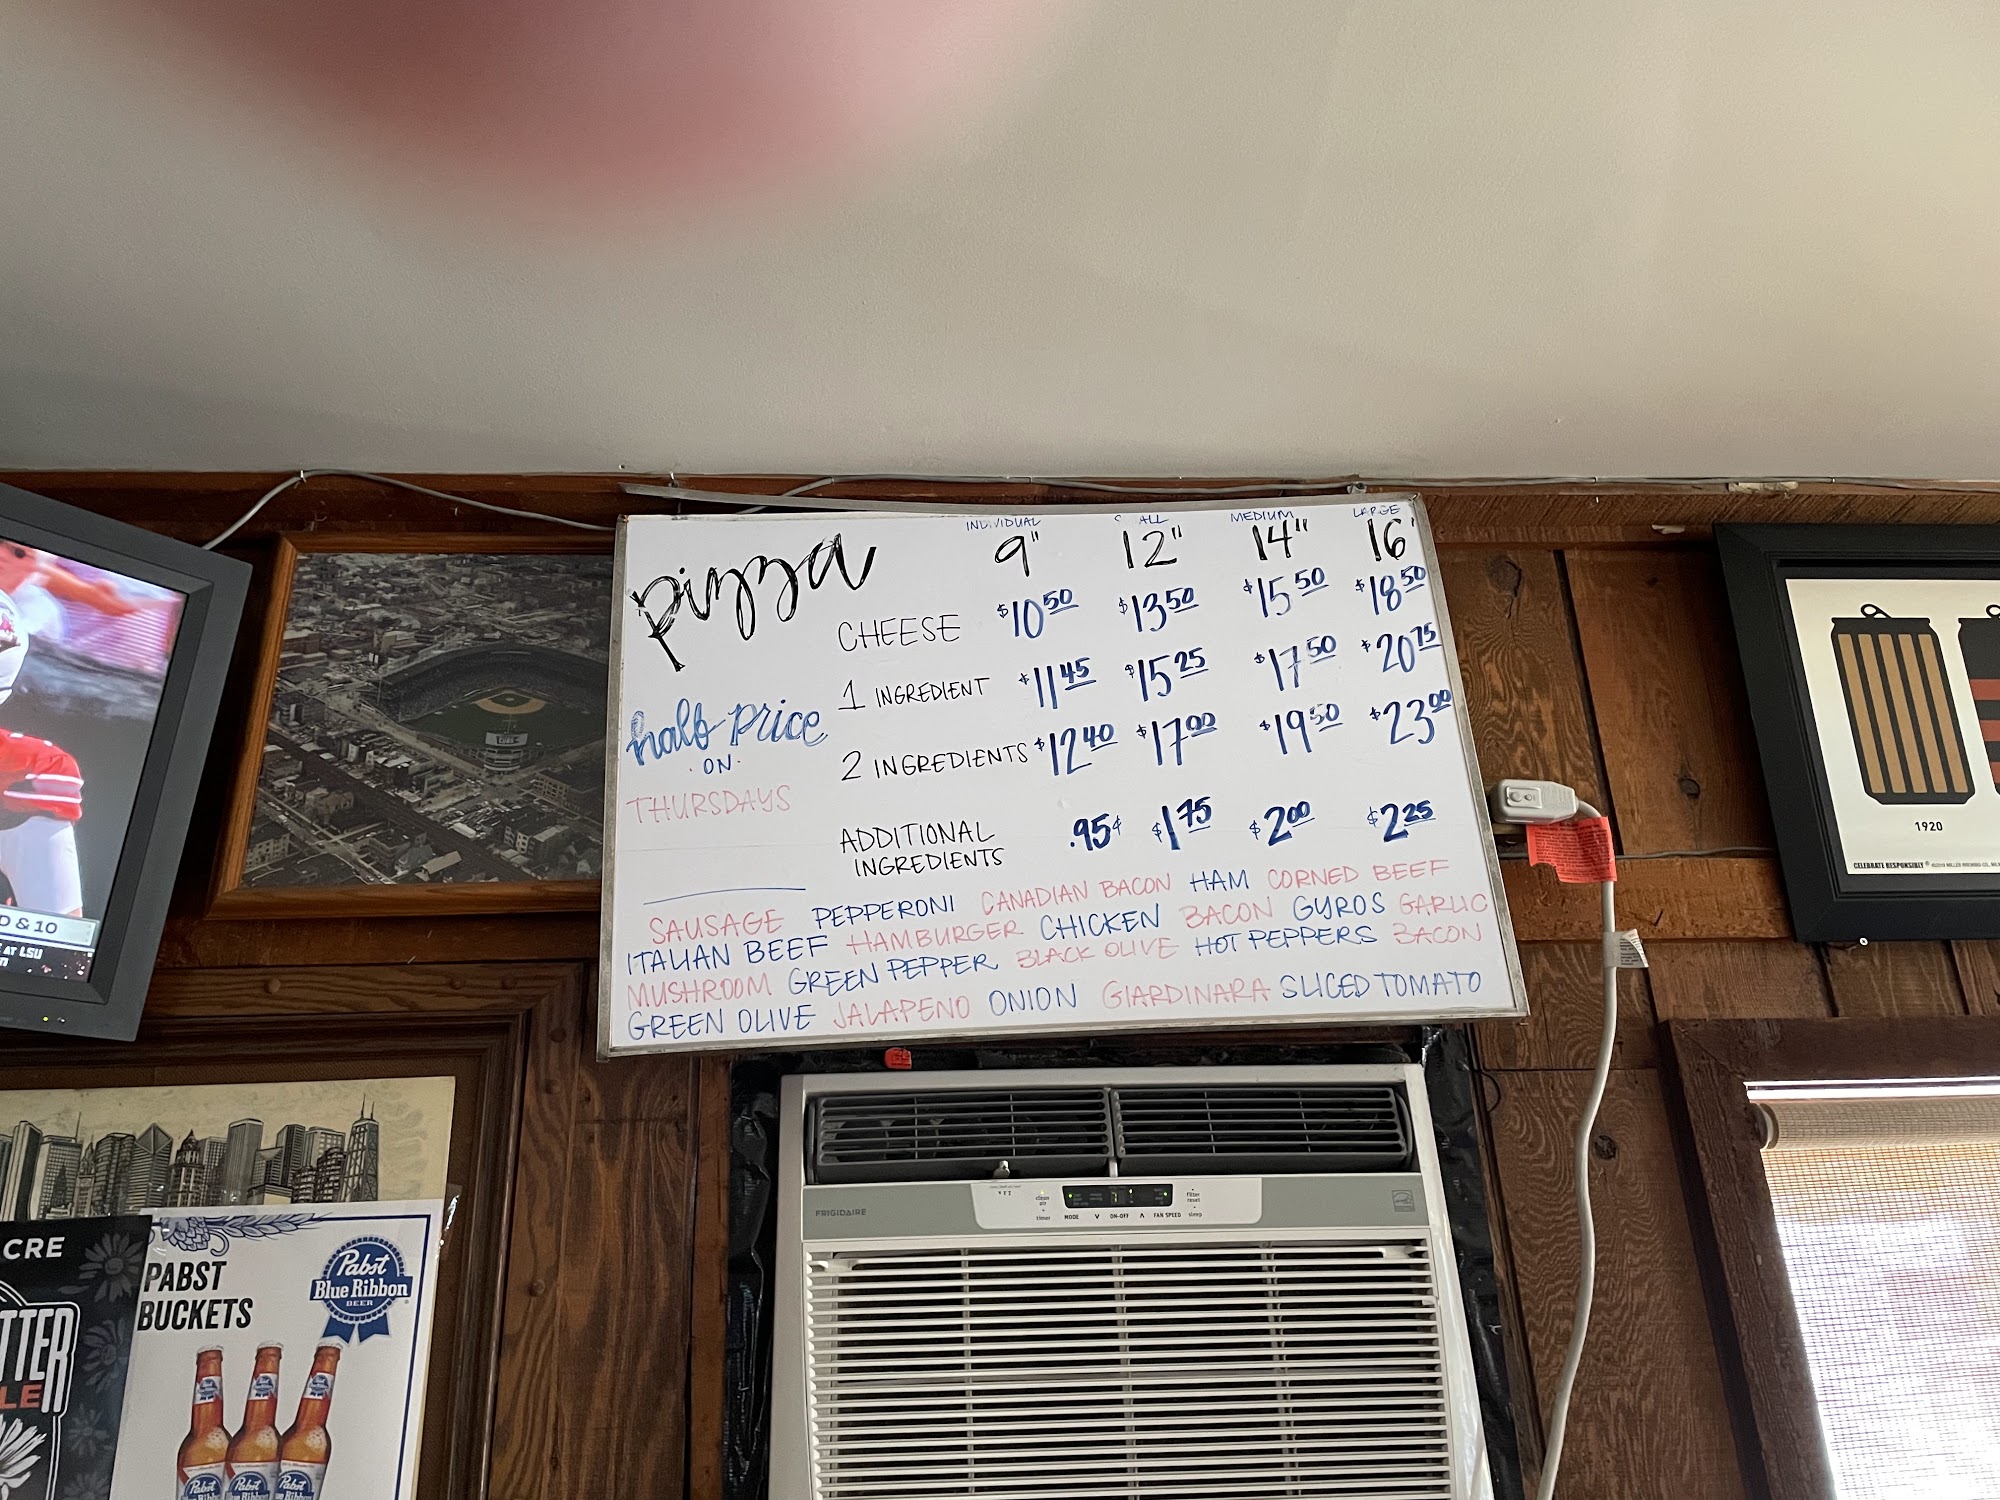 INDIVIDUAL ALL MEDIUM LARGE
pizza 9" 12" 14" 16'
CHEESE $10 50 $13 50 $15 50 $18 50
1 INGREDIENT $11 45 $15 25 $17 50 $20 75
half price
·ON·
THURSDAYS
2 INGREDIENTS $12 40 $17 00 $19 50 $23 00
ADDITIONAL
INGREDIENTS .95¢ $1 75 $2 00 $2 25
SAUSAGE PEPPERONI CANADIAN BACON HAM CORNED BEEF
ITALIAN BEEF HAMBURGER CHICKEN BACON GYROS GARLIC
MUSHROOM GREEN PEPPER BLACK OLIVE HOT PEPPERS BACON
GREEN OLIVE JALAPENO ONION GIARDINARA SLICED TOMATO
D & 10
AT LSU
1920
CELEBRATE RESPONSIBLY
FRIGIDAIRE
clean
air
timer
MODE ON-OFF FAN SPEED
filter
reset
sleep
CRE
TTER
LE
PABST
BUCKETS
Pabst
Blue Ribbon
BEER
Pabst Pabst Pabst
Blue Ribb Blue Ribbon Blue Ribbon